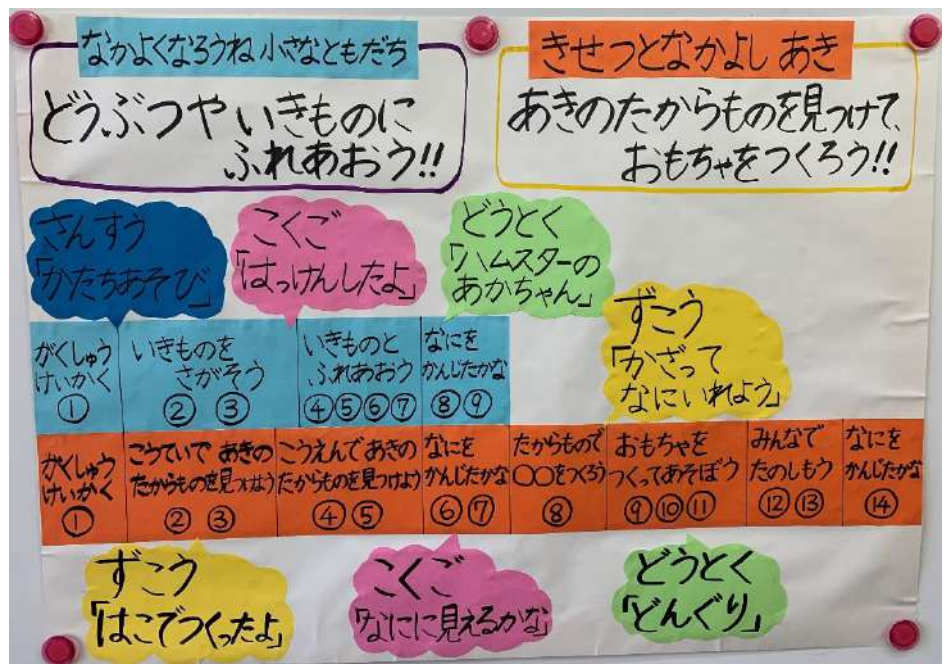 なかよくなろうね 小さなともだち
どうぶつや いきものに
ふれあおう!!
きせつとなかよし あき
あきのたからものを見つけて、
おもちゃをつくろう!!
さんすう
「かたちあそび」
こくご
「はっけんしたよ」
どうとく
「ハムスターの
あかちゃん」
ずこう
「かざって
なにいれよう」
がくしゅう
けいかく
①
いきものを
さがそう
② ③
いきものと
ふれあおう
④⑤⑥⑦
なにを
かんじたかな
⑧⑨
がくしゅう
けいかく
①
こうていで あきの
たからものを見つけよう
② ③
こうえんで あきの
たからものを見つけよう
④⑤
なにを
かんじたかな
⑥⑦
たからもので
○○をつくろう
⑧
おもちゃを
つくってあそぼう
⑨⑩⑪
みんなで
たのしもう
⑫⑬
なにを
かんじたかな
⑭
ずこう
「はこでつくったよ」
こくご
「なにに見えるかな」
どうとく
「どんぐり」